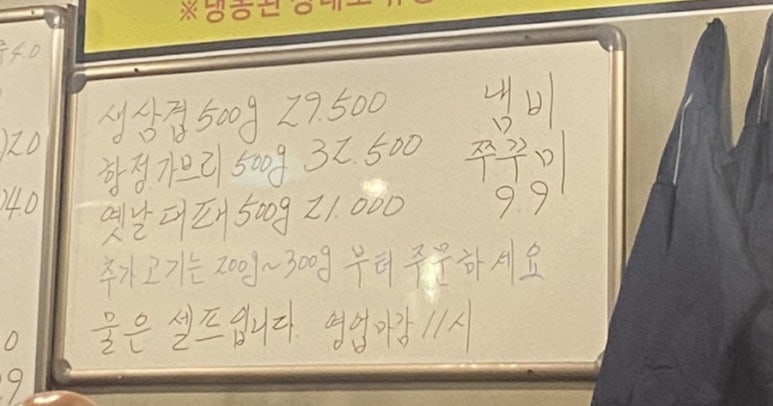 ※냉동된 상태로
생삼겹 500g 29.500
항정가브리 500g 32.500
옛날대패 500g 21.000
추가고기는 200g~300g 부터 주문하세요
물은 셀프입니다. 영업마감 11시
냄비
쭈꾸미
9.9
4.0
20
04.0
0
9